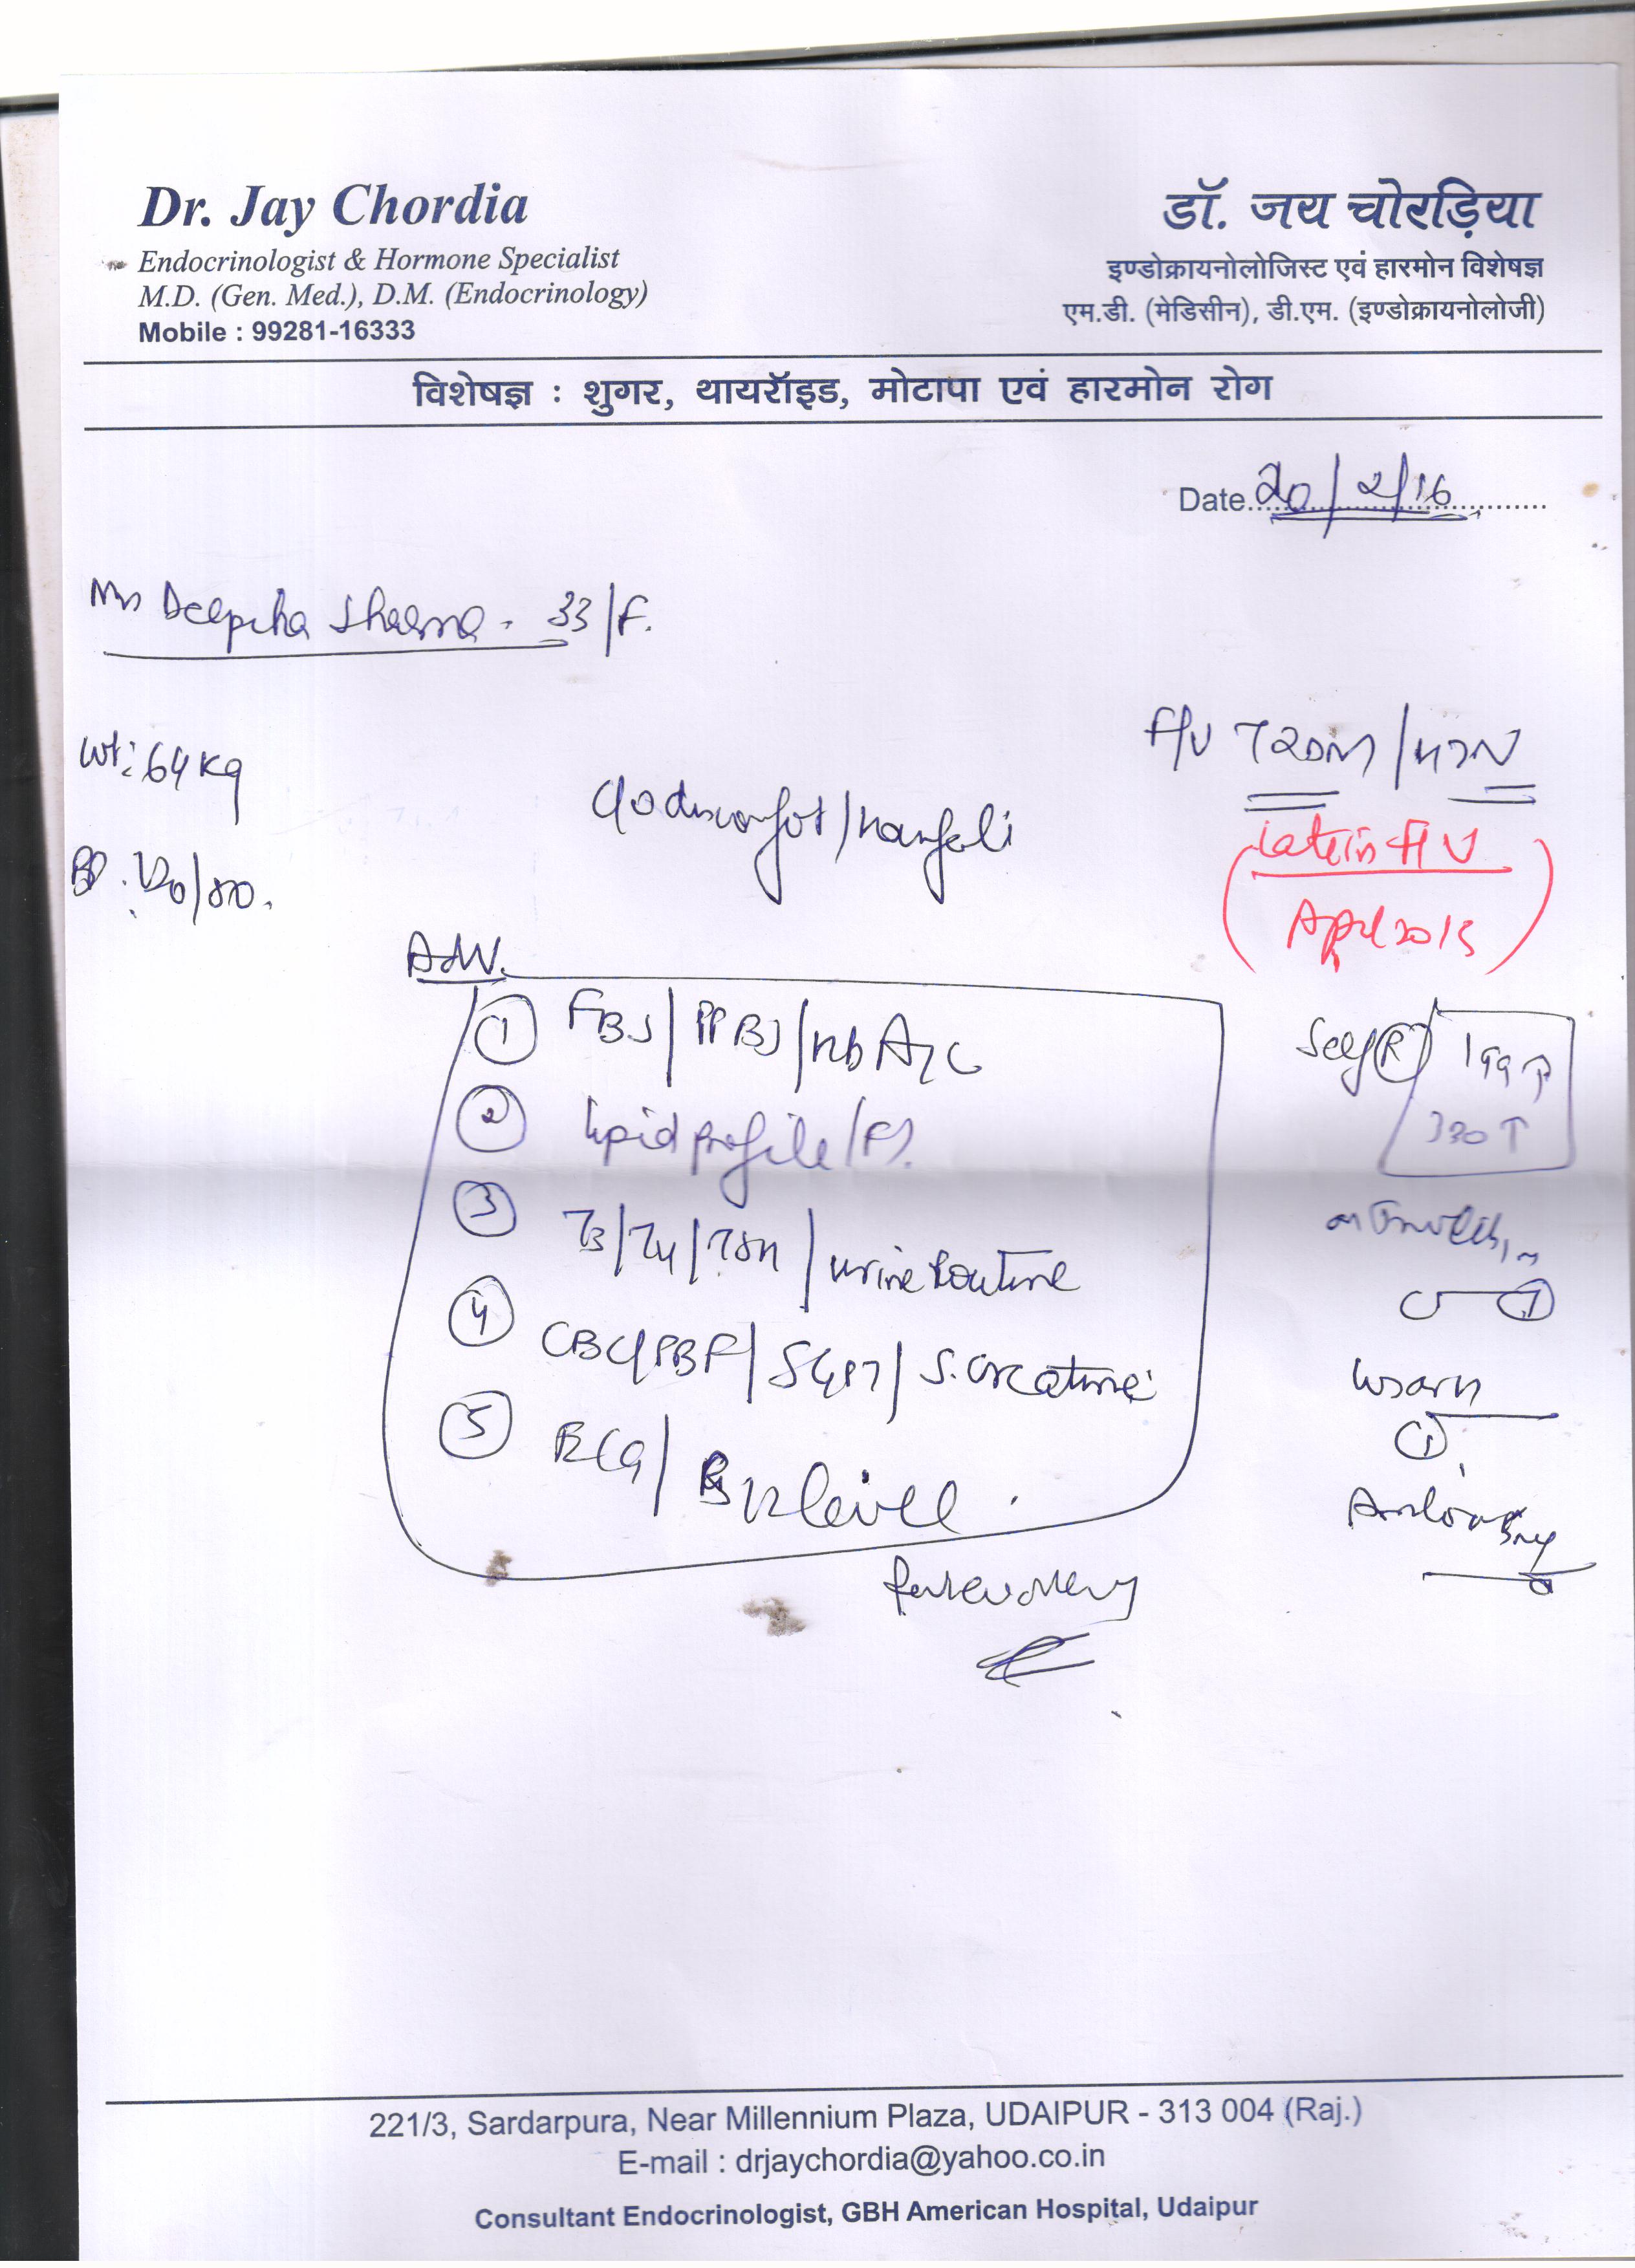 Dr. Jay Chordia
Endocrinologist & Hormone Specialist
M.D. (Gen. Med.), D.M. (Endocrinology)
Mobile : 99281-16333
डॉ. जय चोरड़िया
इण्डोक्रायनोलोजिस्ट एवं हारमोन विशेषज्ञ
एम.डी. (मेडिसीन), डी.एम. (इण्डोक्रायनोलोजी)
विशेषज्ञ : शुगर, थायरॉइड, मोटापा एवं हारमोन रोग
Date 20/2/16
Deepika Sharma - 33/F.
Wt: 64 kg
BP: 120/80.
F/U T2DM/HTN
(Late in F/U
April 2015)
Adv.
① FBS/PPBS/HbA1c
② lipid profile (F).
③ T3/T4/TSH/urine Routine
④ CBC/PBF/SGPT/S. creatinine
⑤ ECG/B12 level.
Self (R)
199
330
①
221/3, Sardarpura, Near Millennium Plaza, UDAIPUR - 313 004 (Raj.)
E-mail : drjaychordia@yahoo.co.in
Consultant Endocrinologist, GBH American Hospital, Udaipur